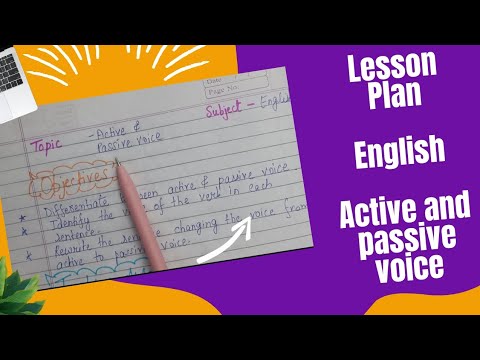 Page No.
Subject - English
Topic - Active &
Passive voice
Objectives
* Differentiate between active & passive voice.
* Identify the voice of the verb in each
sentence.
* Rewrite the sentence changing the voice from
active to passive voice.
Lesson
Plan
English
Active and
passive
voice